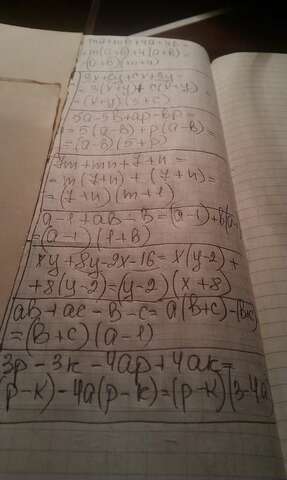 ma+mb+4a+4b=
=m(a+b)+4(a+b)=
=(a+b)(m+4)
3x+3y+cx+cy=
=3(x+y)+c(x+y)=
=(x+y)(3+c)
5a-5b+ap-bp=
=5(a-b)+p(a-b)=
=(a-b)(5+p)
7m+mn+7+n=
=m(7+n)+(7+n)=
=(7+n)(m+1)
a-1+ab-b=(a-1)+b(a-
=(a-1)(1+b)
xy+8y-2x-16=x(y-2)+
+8(y-2)=(y-2)(x+8)
ab+ac-b-c=a(b+c)-(b+c)
=(b+c)(a-1)
3p-3k-4ap+4ak=
(p-k)-4a(p-k)=(p-k)(3-4a